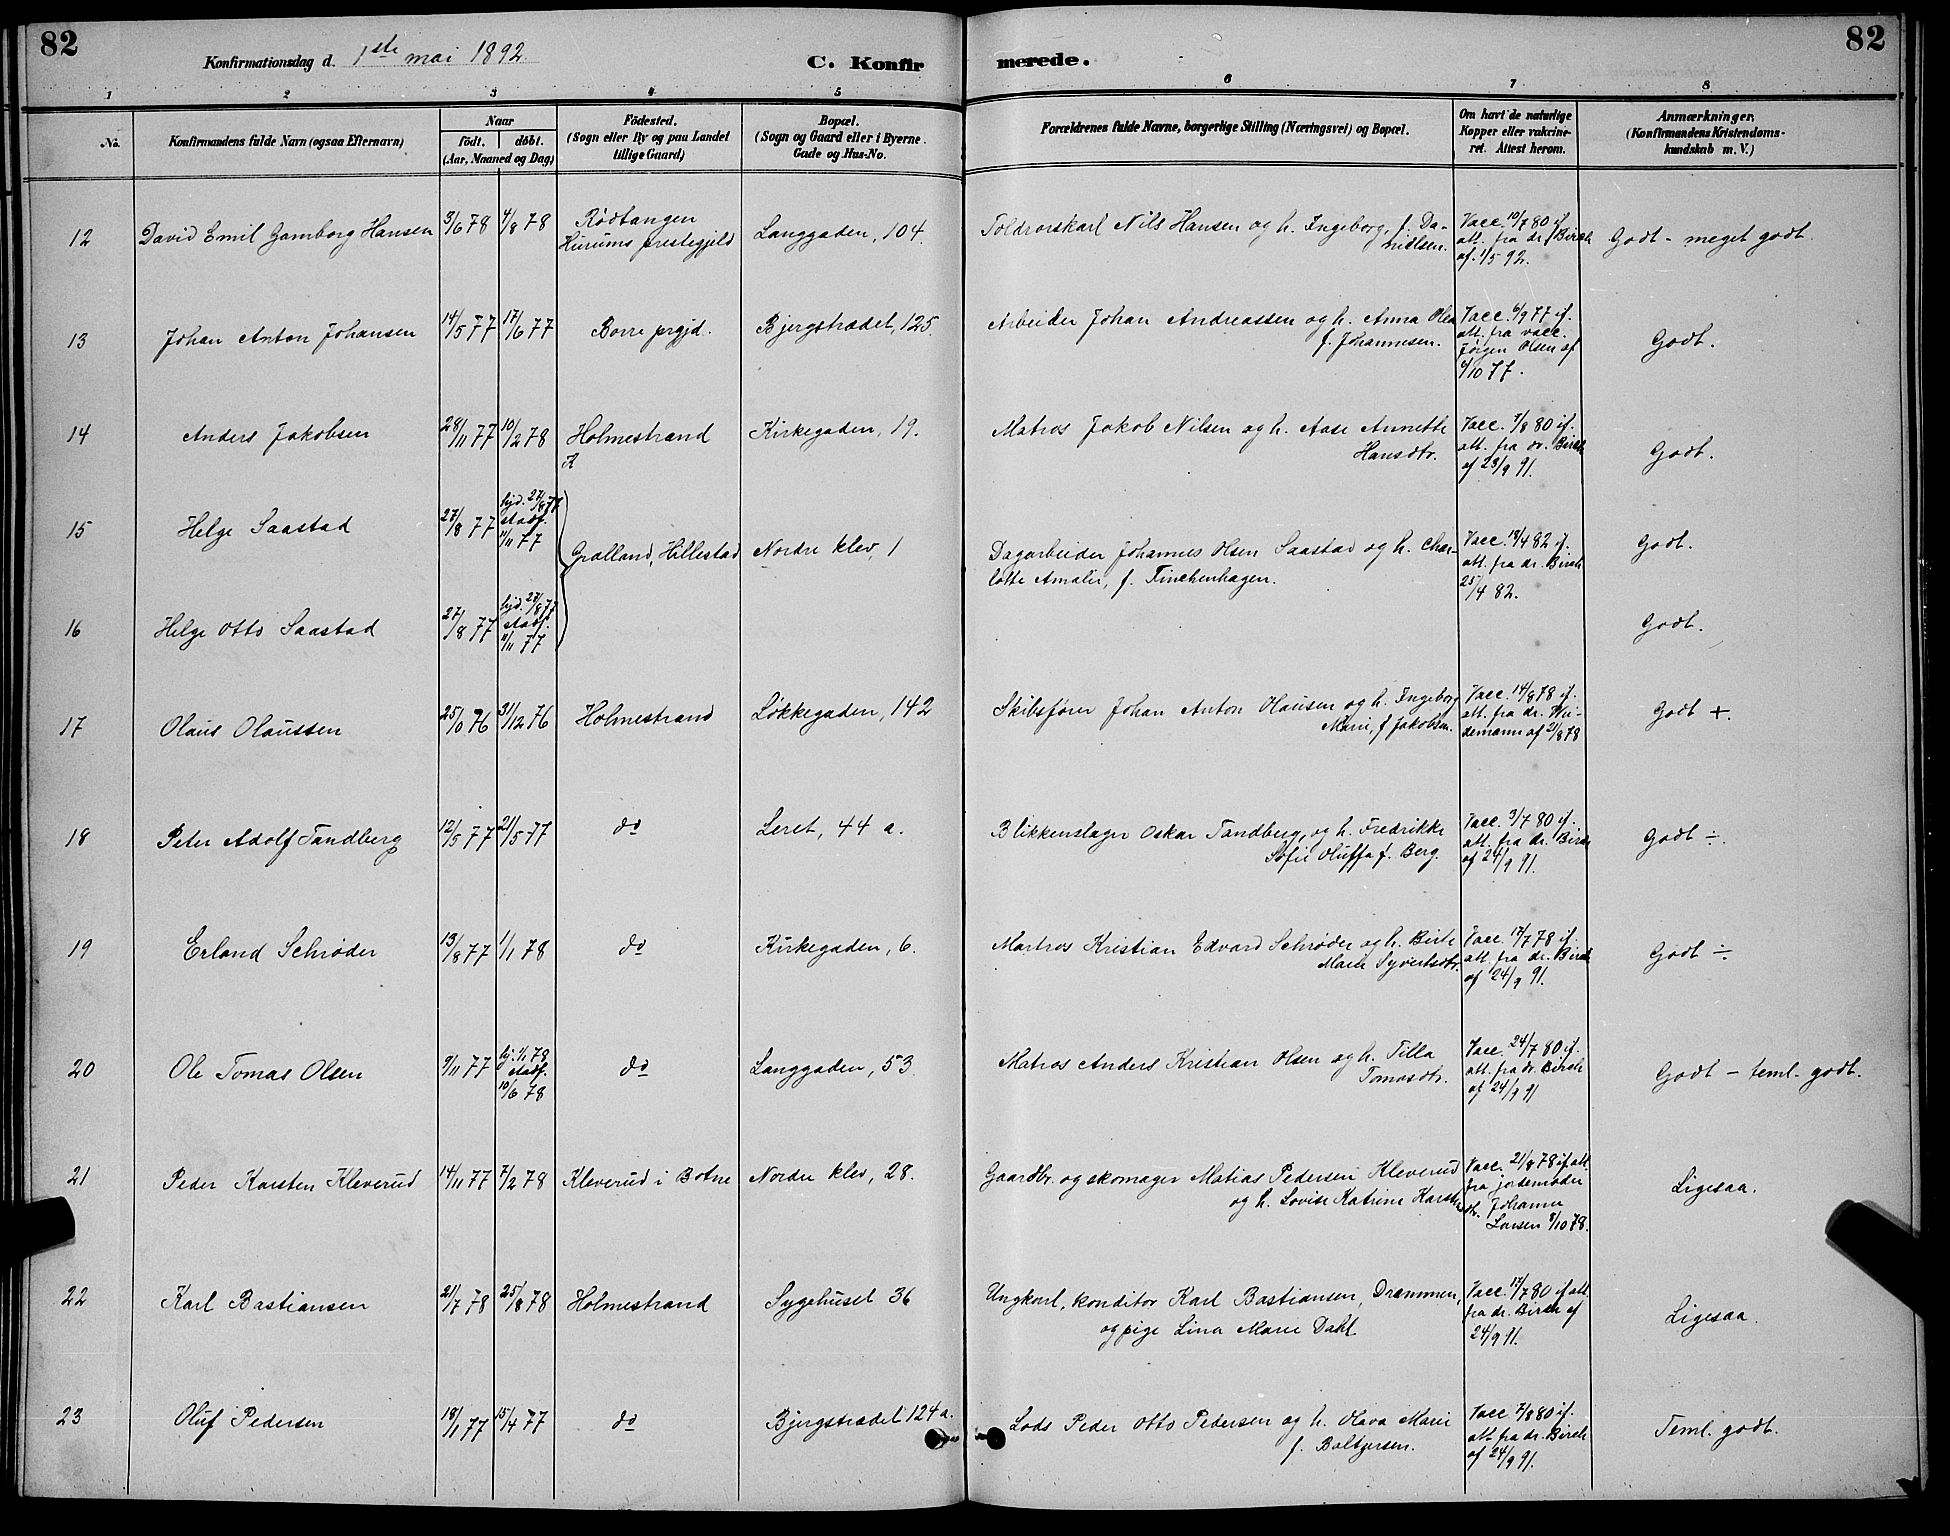 82
Konfirmationsdag d. 1ste mai 1892.
C. Konfirmerede.
82
1 2 3 4 5 6 7 8
No.
Konfirmandens fulde Navn (ogsaa Efternavn)
Naar
födt. döbt.
(Aar, Maaned og Dag)
Födested.
(Sogn eller By og paa Landet
tillige Gaard)
Bopæl.
(Sogn og Gaard eller i Byerne.
Gade og Hus-No.
Forældrenes fulde Navne, borgerlige Stilling (Næringsvei) og Bopæl.
Om havt de naturlige
Kopper eller vakcine-
ret. Attest herom.
Anmærkninger.
(Konfirmandens Kristendoms-
kundskab m. V.)
12 David Emil Gamborg Hansen 3/6 78 4/8 78
Rödtangen
Hurums prestegjeld
Langgaden, 104.
Toldrorskarl Nils Hansen og h. Ingeborg, f. Da-
nielsen.
Vacc. 10/7 80 if.
att. fra dr. Birch
af 1/5 92.
Godt - meget godt.
13 Johan Anton Johansen 14/5 77 17/6 77 Borre prgjd. Bjergstrædet, 125.
Arbeider Johan Andreassen og h. Anna Olea
f. Johannesen.
Vacc. 6/9 77 if.
att. fra vacc.
Jørgen Olsen af
4/10 77.
Godt.
14 Anders Jakobsen 28/11 77 10/2 78 Holmestrand Kirkegaden, 19.
Matros Jakob Nilsen og h. Aase Annette
Hansdtr.
Vacc. 7/8 80 if.
att. fra dr. Birch
af 23/9 91.
Godt.
15 Helge Saastad 27/8 77
hjd. 27/8 77
stadf.
11/11 77
Gralland, Hillestad Nordre klev, 1
Dagarbeider Johannes Olsen Saastad og h. Char-
lotte Amalie, f. Finchenhagen.
Vacc. 18/4 82 if.
att. fra dr. Birch
25/4 82.
Godt.
16 Helge Otto Saastad 27/8 77
hjd. 27/8 77
stadf.
11/11 77
Godt.
17 Olaus Olaussen 25/10 76 31/12 76 Holmestrand Løkkegaden, 142
Skibsfører Johan Anton Olausen og h. Ingeborg
Marie, f. Jakobsen.
Vacc. 14/8 78 if.
att. fra dr. Wi-
demann af 21/8 78
Godt +.
18 Peter Adolf Tandberg 12/5 77 21/5 77 do Leret, 44 a.
Blikkenslager Oskar Tandberg, og h. Fredrikke
Sofie Oluffa f. Berg.
Vacc. 3/7 80 if.
att. fra dr. Birch
af 24/9 91.
Godt ÷.
19 Erland Schrøder 13/8 77 1/1 78 do Kirkegaden, 6.
Martros Kristian Edvard Schrøder og h. Birte
Marie Syvertsdtr.
Vacc. 17/7 78 if.
att. fra dr. Birch
af 24/9 91.
Godt ÷.
20 Ole Tomas Olsen 9/11 77
hj. 1/1 78
stadf.
10/6 78
do Langgaden, 53.
Matros Anders Kristian Olsen og h. Tilla
Tomasdtr.
Vacc. 24/7 80 if.
att. fra dr. Birch
af 24/9 91
Godt - teml. godt.
21 Peder Karsten Kleverud 14/11 77 7/2 78 Kleverud i Botne Nordre klev, 28.
Gaardbr. og skomager Matias Pedersen Kleverud
og h. Lovise Katrine Karstens
dtr.
Vacc. 21/8 78 if att.
fra jordemoder
Johanne
Larsen 8/10 78.
Ligesaa.
22 Karl Bastiansen 21/7 78 25/8 78 Holmestrand Sygehuset 36
Ungkarl, konditor Karl Bastiansen, Drammen,
og pige Lina Marie Dahl.
Vacc. 17/7 80 if att.
fra dr. Birch af
24/9 91.
Ligesaa.
23 Oluf Pedersen 18/1 77 15/4 77 do Bjergstrædet 124 a.
Lods Peder Otto Pedersen og h. Olava Marie
f. Baltzersen.
Vacc 7/8 80 if.
att. fra dr. Birch
af 24/9 91.
Teml. godt.